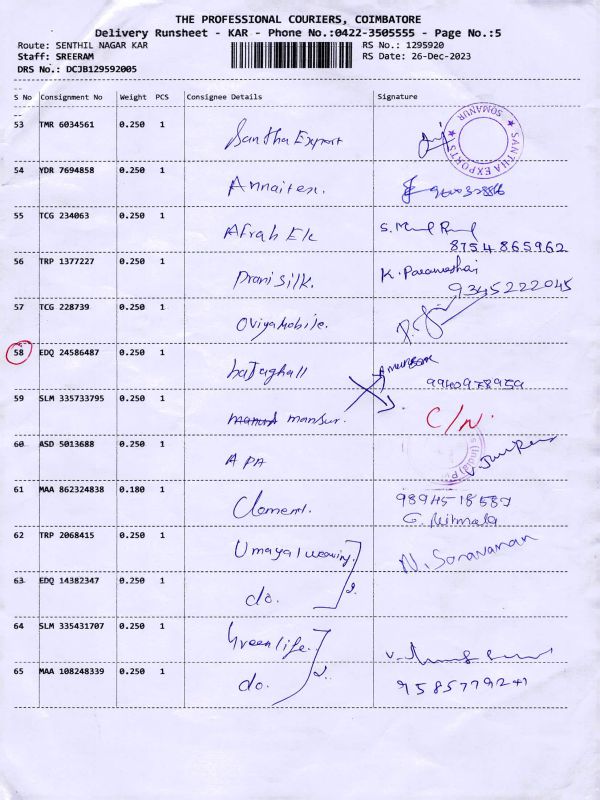 THE PROFESSIONAL COURIERS, COIMBATORE
Delivery Runsheet - KAR - Phone No.:0422-3505555 - Page No.:5
Route: SENTHIL NAGAR KAR RS No.: 1295920
Staff: SREERAM RS Date: 26-Dec-2023
DRS No.: DCJB129592005
S No Consignment No Weight PCS Consignee Details Signature
53 TMR 6034561 0.250 1 Santha Export
SANTHA EXPORTS ★ SOMANUR ★
54 YDR 7694858 0.250 1
55 TCG 234063 0.250 1 Afrah Ek
8754865962
56 TRP 1377227 0.250 1 Prani silk.
9345222045
57 TCG 228739 0.250 1 Oviya Mobile.
58 EDQ 24586487 0.250 1
9940978959
59 SLM 335733795 0.250 1 mansur. C/N.
60 ASD 5013688 0.250 1 APA
61 MAA 862324838 0.180 1
G. Nirmala
62 TRP 2068415 0.250 1 Umayal weaving. N. Saravanan
63 EDQ 14382347 0.250 1 do. 2.
64 SLM 335431707 0.250 1 Greenlife.
65 MAA 108248339 0.250 1 do. 2.